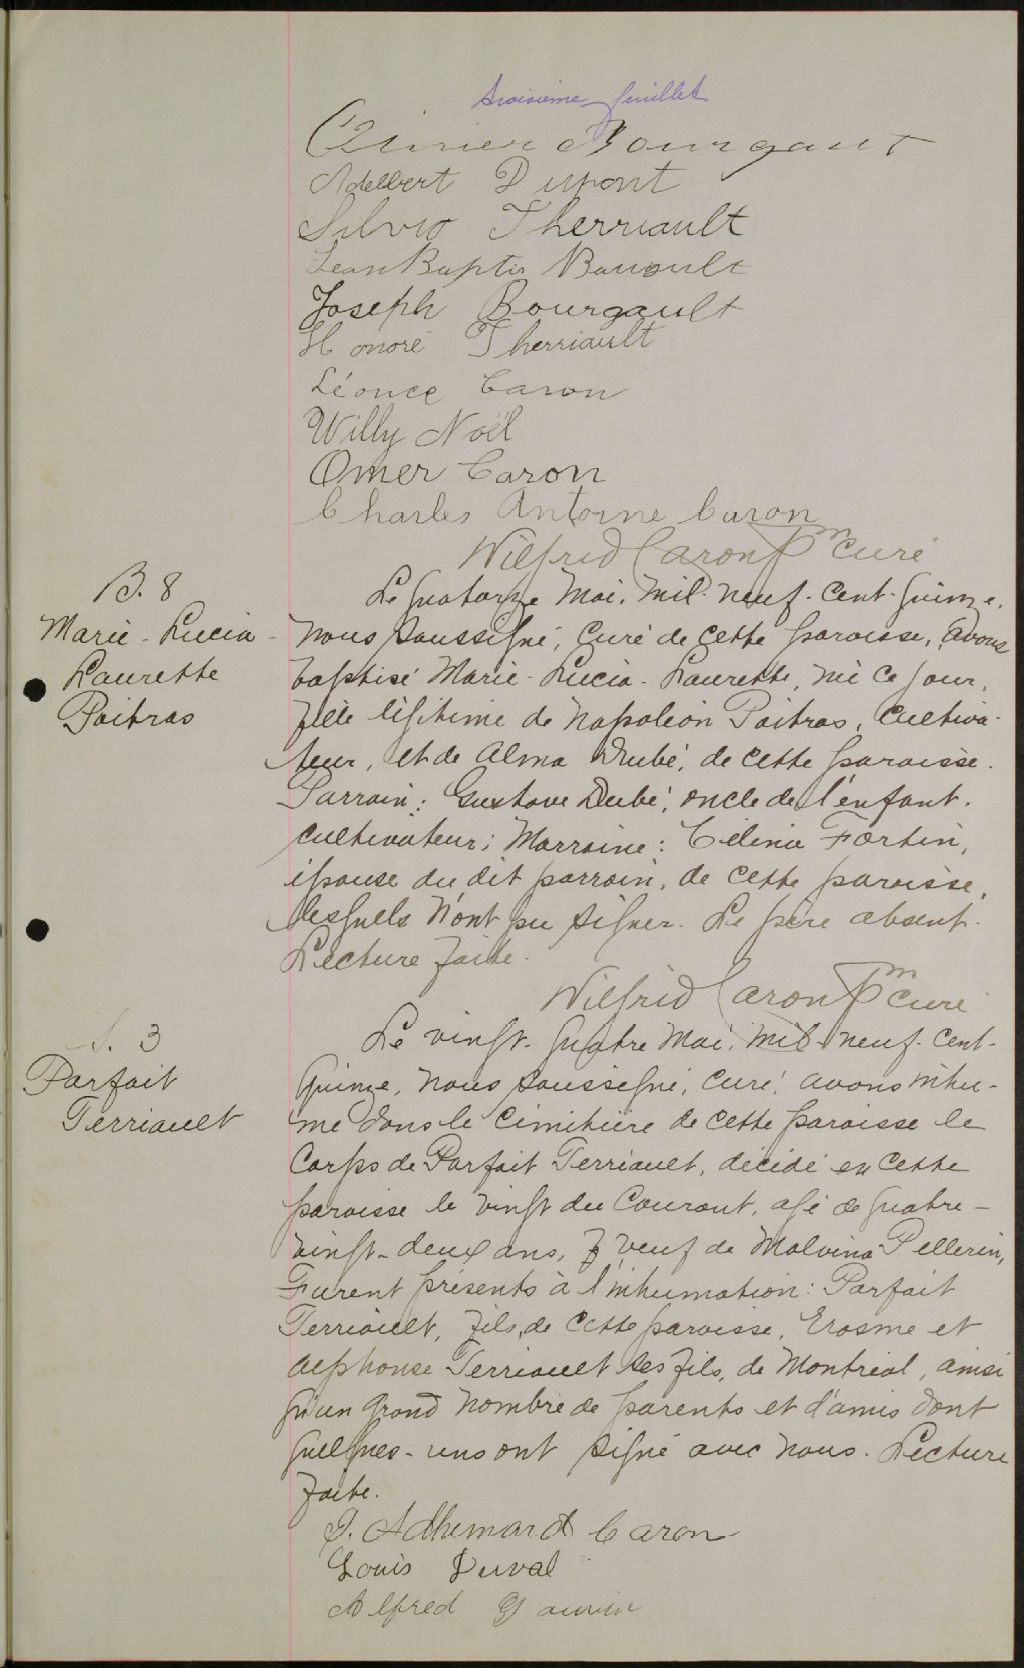 troisième feuillet
Olivier Bourgault
Adelbert Dupont
Silvio Therriault
Jean Baptis
Joseph Bourgault
Honoré Therriault
Léonce Caron
Willy Noël
Omer Caron
Charles Antoine Caron
Wilfrid Caron Ptre curé
B. 8
Marie-Lucia-
Laurette
Poitras
Le quatorze Mai, mil-neuf-cent-quinze,
nous soussigné, curé de cette paroisse, avons
baptisé Marie-Lucia-Laurette, né ce jour,
fille légitime de Napoléon Poitras, cultiva-
teur, et de Alma Dubé, de cette paroisse.
Parrain: Gustave Dubé, oncle de l'enfant.
cultivateur; Marraine: Célina Fortin,
épouse du dit parrain, de cette paroisse,
lesquels n'ont pu signer. Le père absent.
Lecture faite.
Wilfrid Caron Ptre curé
S. 3
Parfait
Terriault
Le vingt-quatre Mai, mil-neuf-cent-
quinze, nous soussigné, curé, avons inhu-
mé dans le cimitière de cette paroisse le
corps de Parfait Terriault, décédé en cette
paroisse le vingt du courant, agé de quatre-
vingt-deux ans, veuf de Malvina Pellerin,
Furent présents à l'inhumation: Parfait
Terriault, fils, de cette paroisse, Erasme et
Alphonse Terriault ses fils, de Montréal, ainsi
qu'un grand nombre de parents et d'amis dont
quelques-uns ont signé avec nous. Lecture
faite.
J. Adhemard Caron
Louis Duval
Alfred Gauvin